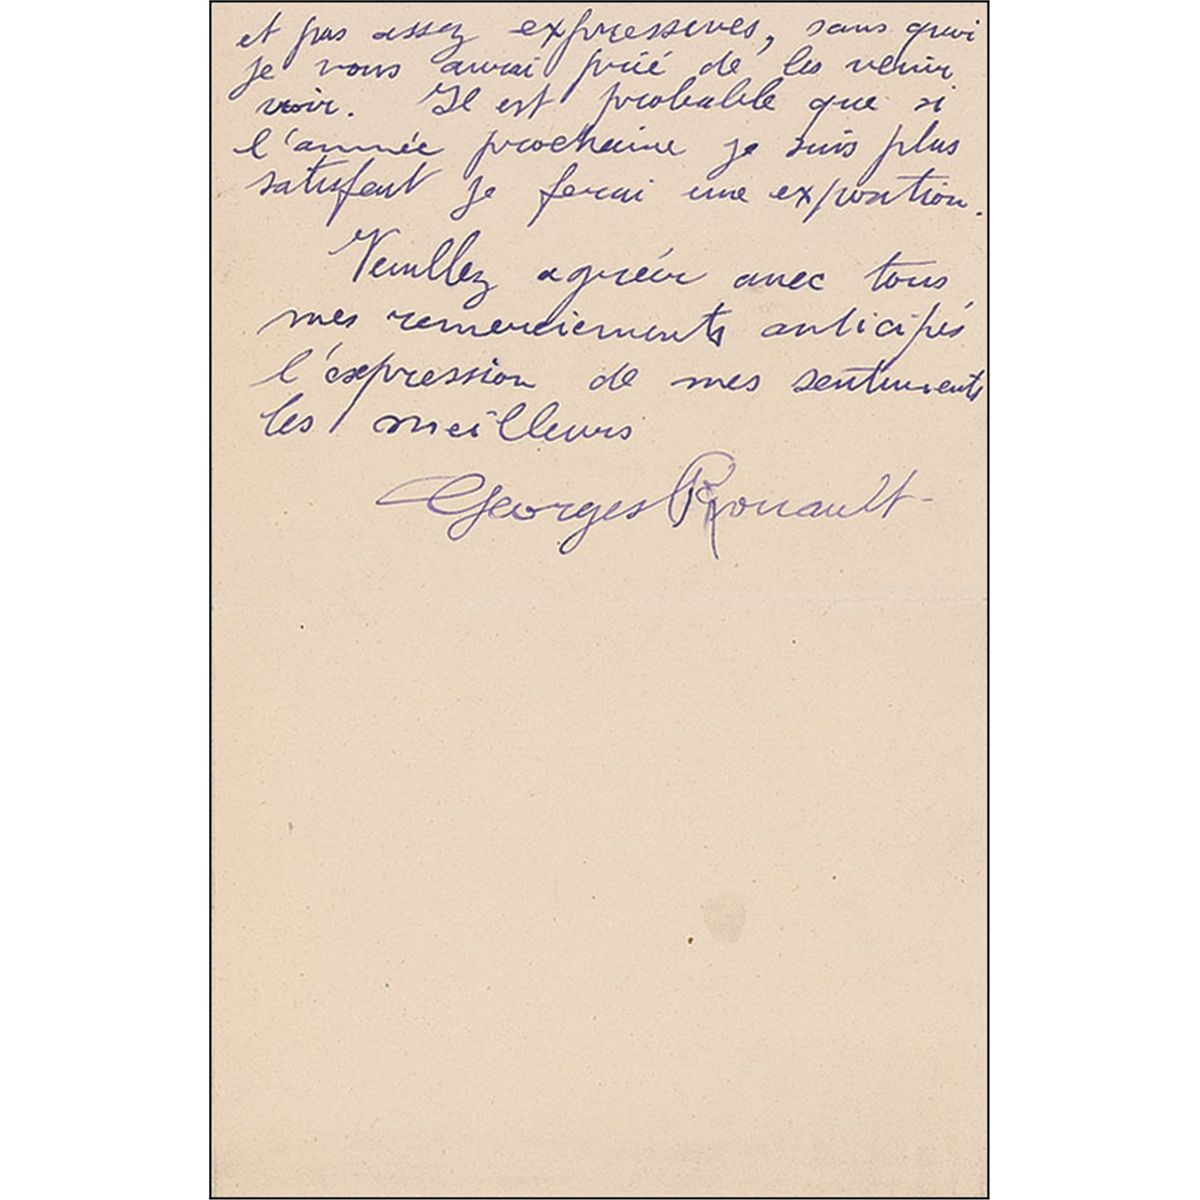 et pas assez expressives, sans quoi
je vous aurai prié de les venir
voir. Il est probable que si
l'année prochaine je suis plus
satisfait je ferai une exposition.
Veuillez agréer avec tous
mes remerciements anticipés
l'expression de mes sentiments
les meilleurs
Georges Rouault